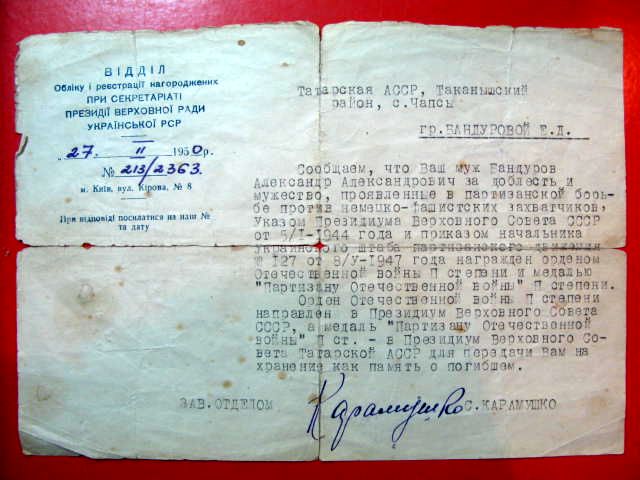 ВІДДІЛ
Обліку і реєстрації нагороджених
ПРИ СЕКРЕТАРІАТІ
ПРЕЗИДІЇ ВЕРХОВНОЇ РАДИ
УКРАЇНСЬКОЇ РСР
„27" II 1950р.
№ 213/2363.
м. Київ, вул. Кірова, № 8
При відповіді посилатися на наш №
та дату
Татарская АССР, Таканышский
район, с.Чапсы
гр.БАНДУРОВОЙ Е.Д.
Сообщаем, что Ваш муж Бандуров
Александр Александрович за доблесть и
мужество, проявленные в партизанской борь-
бе против немецко-фашистских захватчиков,
Указом Президиума Верховного Совета СССР
от 5/I-1944 года и приказом начальника
Украинского штаба партизанского движения
№ 127 от 8/У-1947 года награжден орденом
Отечественной войны П степени и медалью
"Партизану Отечественной войны" П степени.
Орден Отечественной войны П степени
направлен в Президиум Верховного Совета
СССР, а медаль "Партизану Отечественной
войны" П ст. - в Президиум Верховного Со-
вета Татарской АССР для передачи Вам на
хранение как память о погибшем.
ЗАВ.ОТДЕЛОМ Карамушко С.КАРАМУШКО